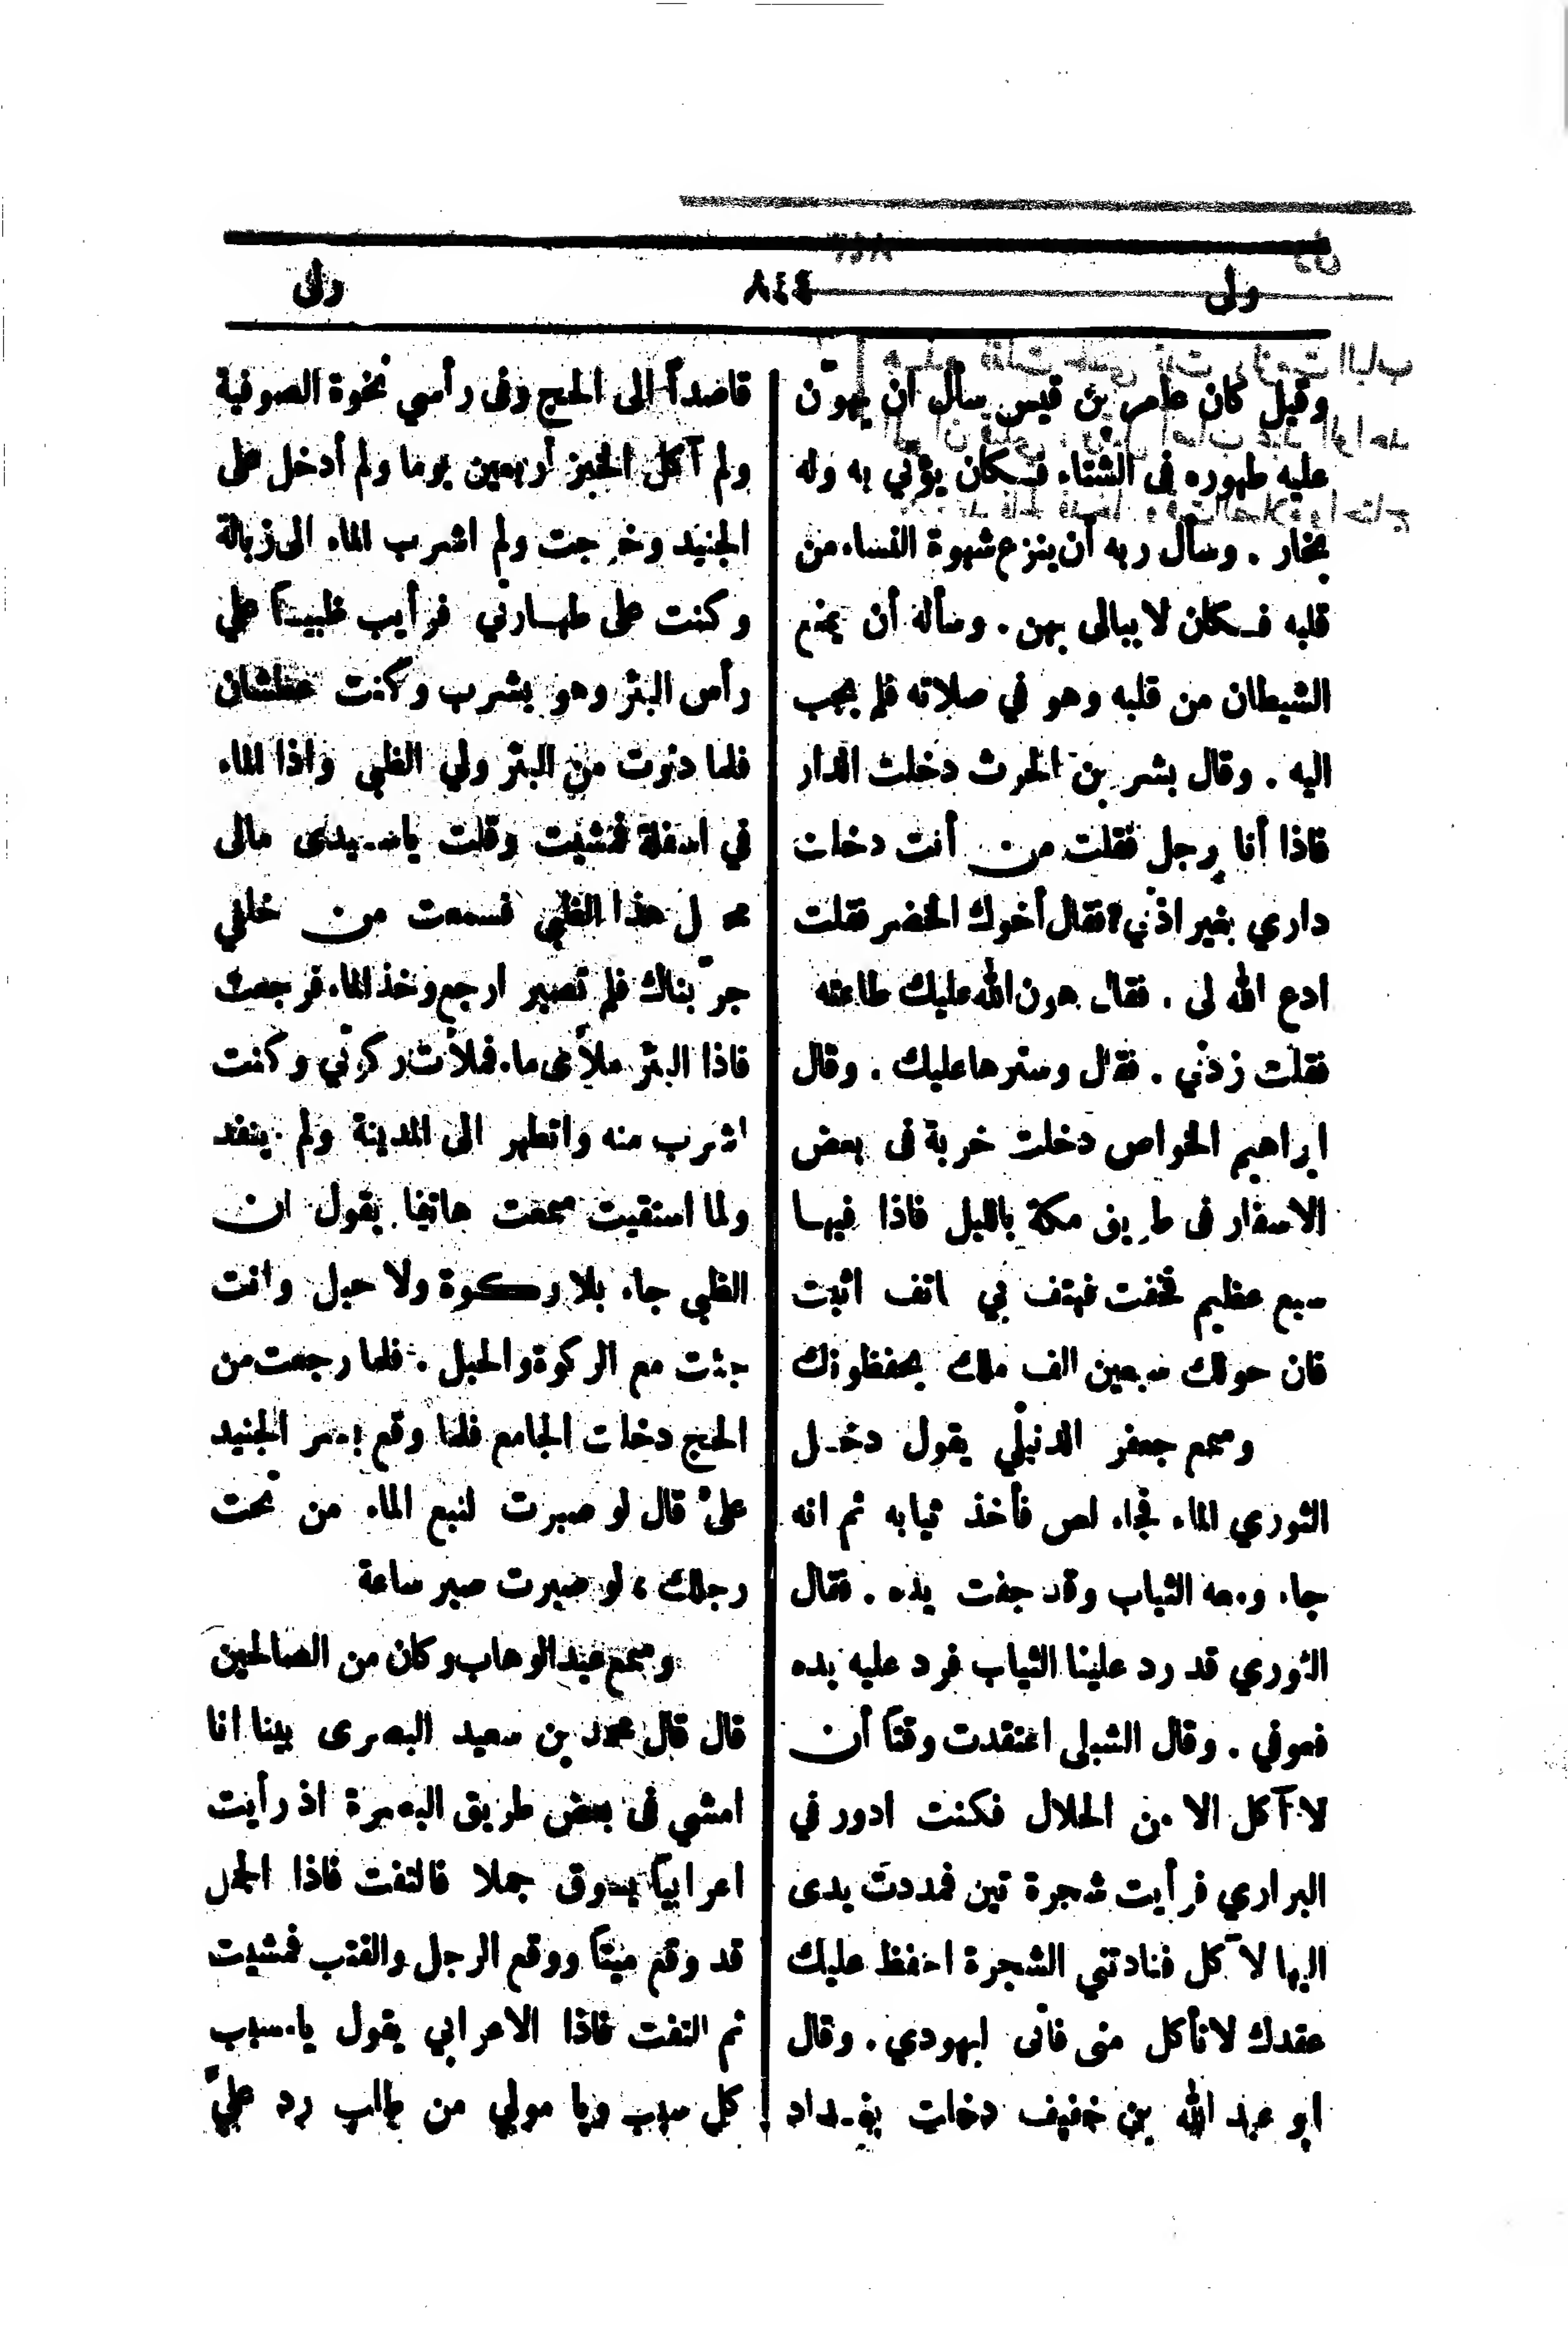 ولى ٨٤٤ ولى
وقيل كان عامر بن قيس سأل أن يهوّن
عليه طهوره فى الشتاء فكان يؤتي به وله
بخار . وسأل ربه أن ينزع شهوة النساء من
قلبه فكان لا يبالى بهن . وسأله أن يمنع
الشيطان من قلبه وهو في صلاته فلم يجب
اليه . وقال بشر بن الحرث دخلت الدار
فاذا أنا برجل فقلت من أنت دخلت
داري بغير اذني؟ فقال أخوك الخضر فقلت
ادع الله لى . فقال هون الله عليك طاعته
فقلت زدني . فقال وسترها عليك . وقال
ابراهيم الخواص دخلت خربة فى بعض
الاسفار فى طريق مكة بالليل فاذا فيها
سبع عظيم فخفت فهتف بي هاتف اثبت
فان حولك سبعين الف ملك يحفظونك
وسمع جعفر الدنبلي يقول دخل
الثوري الماء فجاء لص فأخذ ثيابه ثم انه
جاء ومعه الثياب وقد جفت يده . فقال
الثوري قد رد علينا الثياب فرد عليه يده
فعوفي . وقال الشبلى اعتقدت وقتاً أن
لا آكل الا من الحلال فكنت ادور في
البراري فرأيت شجرة تين فمددت يدى
اليها لآكل فنادتني الشجرة احفظ عليك
عقدك لا تأكل منى فانى ليهودي . وقال
ابو عبد الله بن خفيف دخلت بغداد
قاصداً الى الحج وفى رأسي نخوة الصوفية
ولم آكل الخبز أربعين يوما ولم أدخل على
الجنيد وخرجت ولم اشرب الماء الى زبالة
وكنت على طهارتي فرأيت ظبياً على
رأس البئر وهو يشرب وكنت عطشان
فلما دنوت من البئر ولي الظبى واذا الماء
في اسفله فمشيت وقلت ياسيدى مالى
محل هذا الظبي فسمعت من خلفي
جرّبناك فلم تصبر ارجع وخذ الماء فرجعت
فاذا البئر ملأى ماء فملأت ركوتي وكنت
اشرب منه واتطهر الى المدينة ولم ينفد
ولما استقيت سمعت هاتفا يقول ان
الظبى جاء بلا ركوة ولا حبل وانت
جئت مع الركوة والحبل . فلما رجعت من
الحج دخلت الجامع فلما وقع بصر الجنيد
علىّ قال لو صبرت لنبع الماء من تحت
رجلك ، لو صبرت صبر ساعة
وسمع عبد الوهاب وكان من الصالحين
قال قال محمد بن سعيد البصرى بينا انا
امشي فى بعض طريق البصرة اذ رأيت
اعرابياً يسوق جملا فالتفت فاذا الجمل
قد وقع ميتاً ووقع الرجل والقتب فمشيت
ثم التفت فاذا الاعرابي يقول يا مسبب
كل سبب ويا مولي من طلب رد عليّ